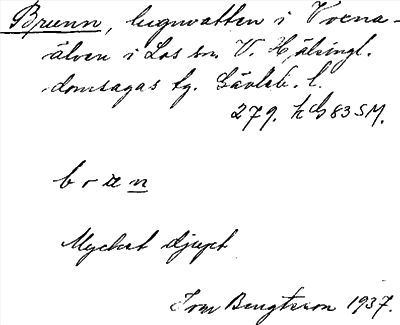 Brunn, lugnvatten i Voxna-
älven i Los sn V. Hälsingl.
domsagas tg. Gävleb. l.
279. h G83SM.
b o n
Mycket djupt
Ivar Bengtsson 1937.